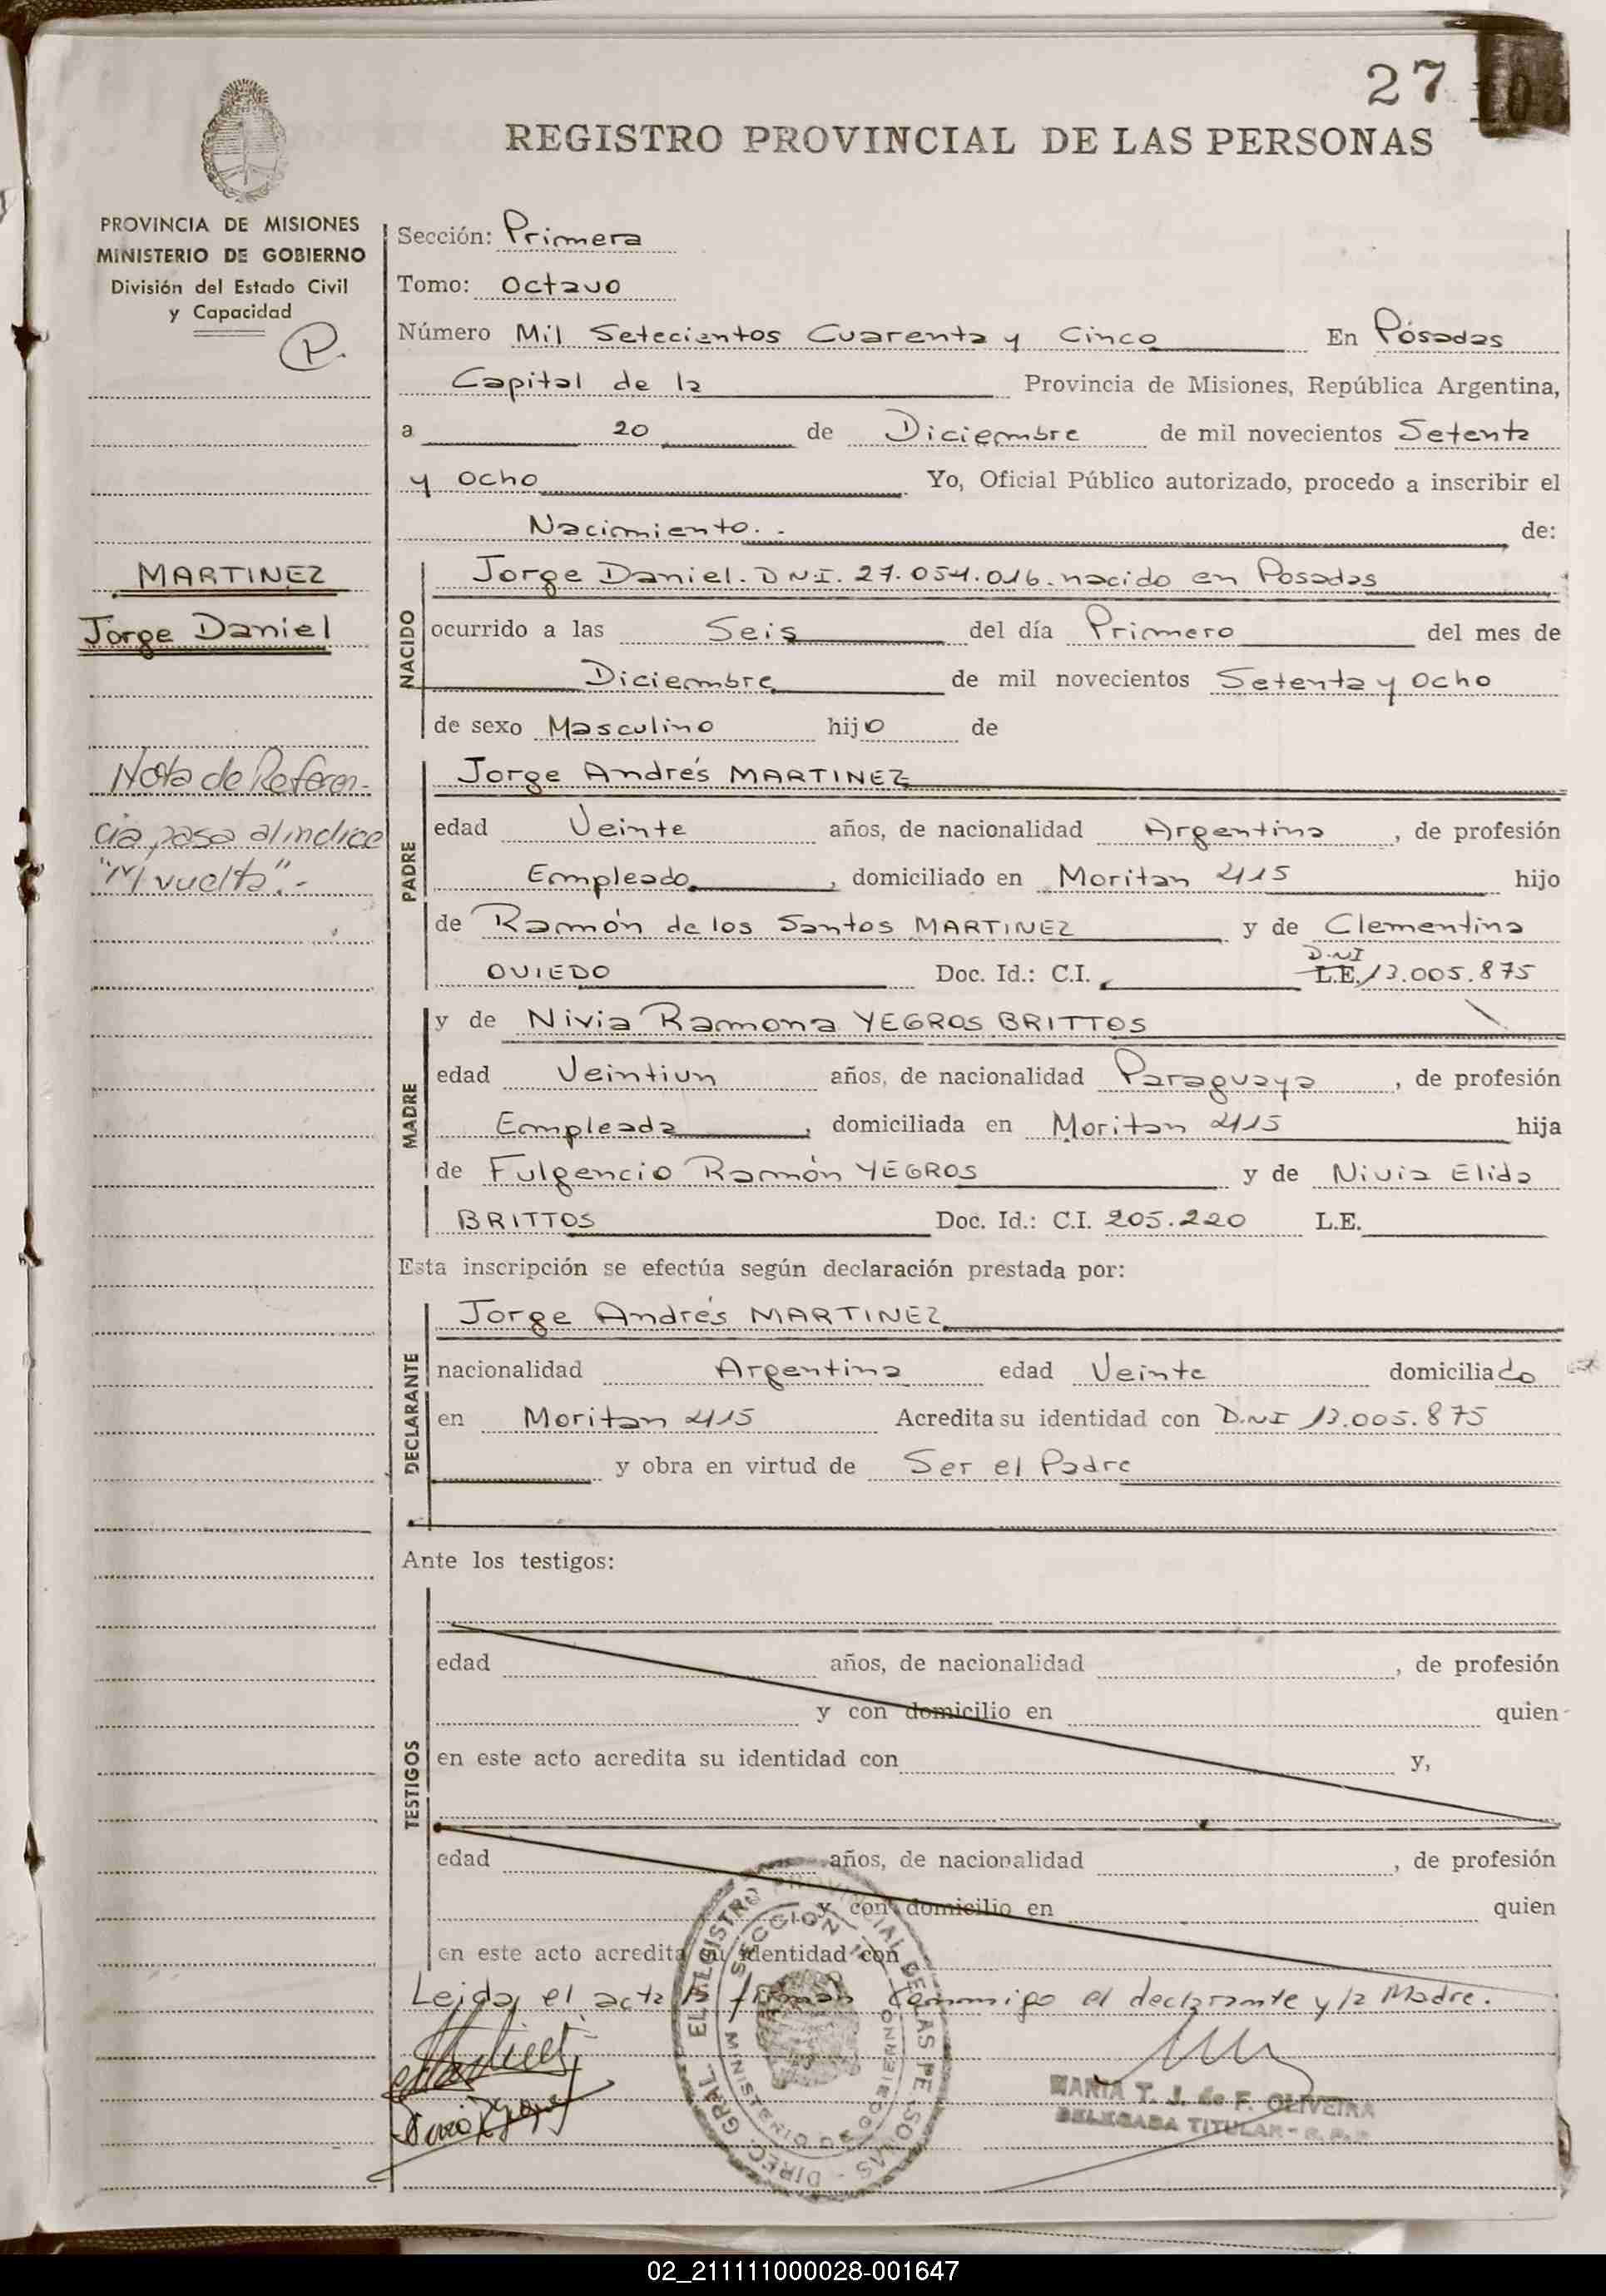 27
REGISTRO PROVINCIAL DE LAS PERSONAS
PROVINCIA DE MISIONES
MINISTERIO DE GOBIERNO
División del Estado Civil
y Capacidad
P.
MARTINEZ
Jorge Daniel
Nota de Referen-
cia pasa al indice
"M vuelta".-
Sección: Primera
Tomo: Octavo
Número Mil Setecientos Cuarenta y Cinco En Posadas
Capital de la Provincia de Misiones, República Argentina,
a 20 de Diciembre de mil novecientos Setenta
y ocho Yo, Oficial Público autorizado, procedo a inscribir el
Nacimiento.- de:
NACIDO
Jorge Daniel. D N I. 27.054.016. nacido en Posadas
ocurrido a las Seis del día Primero del mes de
Diciembre de mil novecientos Setenta y ocho
de sexo Masculino hijo de
PADRE
Jorge Andrés MARTINEZ
edad Veinte años, de nacionalidad Argentina, de profesión
Empleado, domiciliado en Moritan 415 hijo
de Ramón de los Santos MARTINEZ y de Clementina
OVIEDO Doc. Id.: C.I. L.E. D.NI 13.005.875
MADRE
y de Nivia Ramona YEGROS BRITTOS
edad Veintiun años, de nacionalidad Paraguaya, de profesión
Empleada, domiciliada en Moritan 415 hija
de Fulgencio Ramón YEGROS y de Nivia Elida
BRITTOS Doc. Id.: C.I. 205.220 L.E.
Esta inscripción se efectúa según declaración prestada por:
DECLARANTE
Jorge Andrés MARTINEZ
nacionalidad Argentina edad Veinte domiciliado
en Moritan 415 Acredita su identidad con D.NI 13.005.875
y obra en virtud de Ser el Padre
Ante los testigos:
TESTIGOS
edad años, de nacionalidad , de profesión
y con domicilio en quien
en este acto acredita su identidad con y,
edad años, de nacionalidad , de profesión
y con domicilio en quien
en este acto acredita su identidad con
Leida el acta la firman conmigo el declarante y la Madre.
MARIA T. J. de F. OLIVEIRA
DELEGADA TITULAR - R. P. P.
DIREC. GRAL. EL REGISTRO PROVINCIAL DE LAS PERSONAS
SECCION 1a
MINISTERIO DE GOBIERNO
02_211111000028-001647